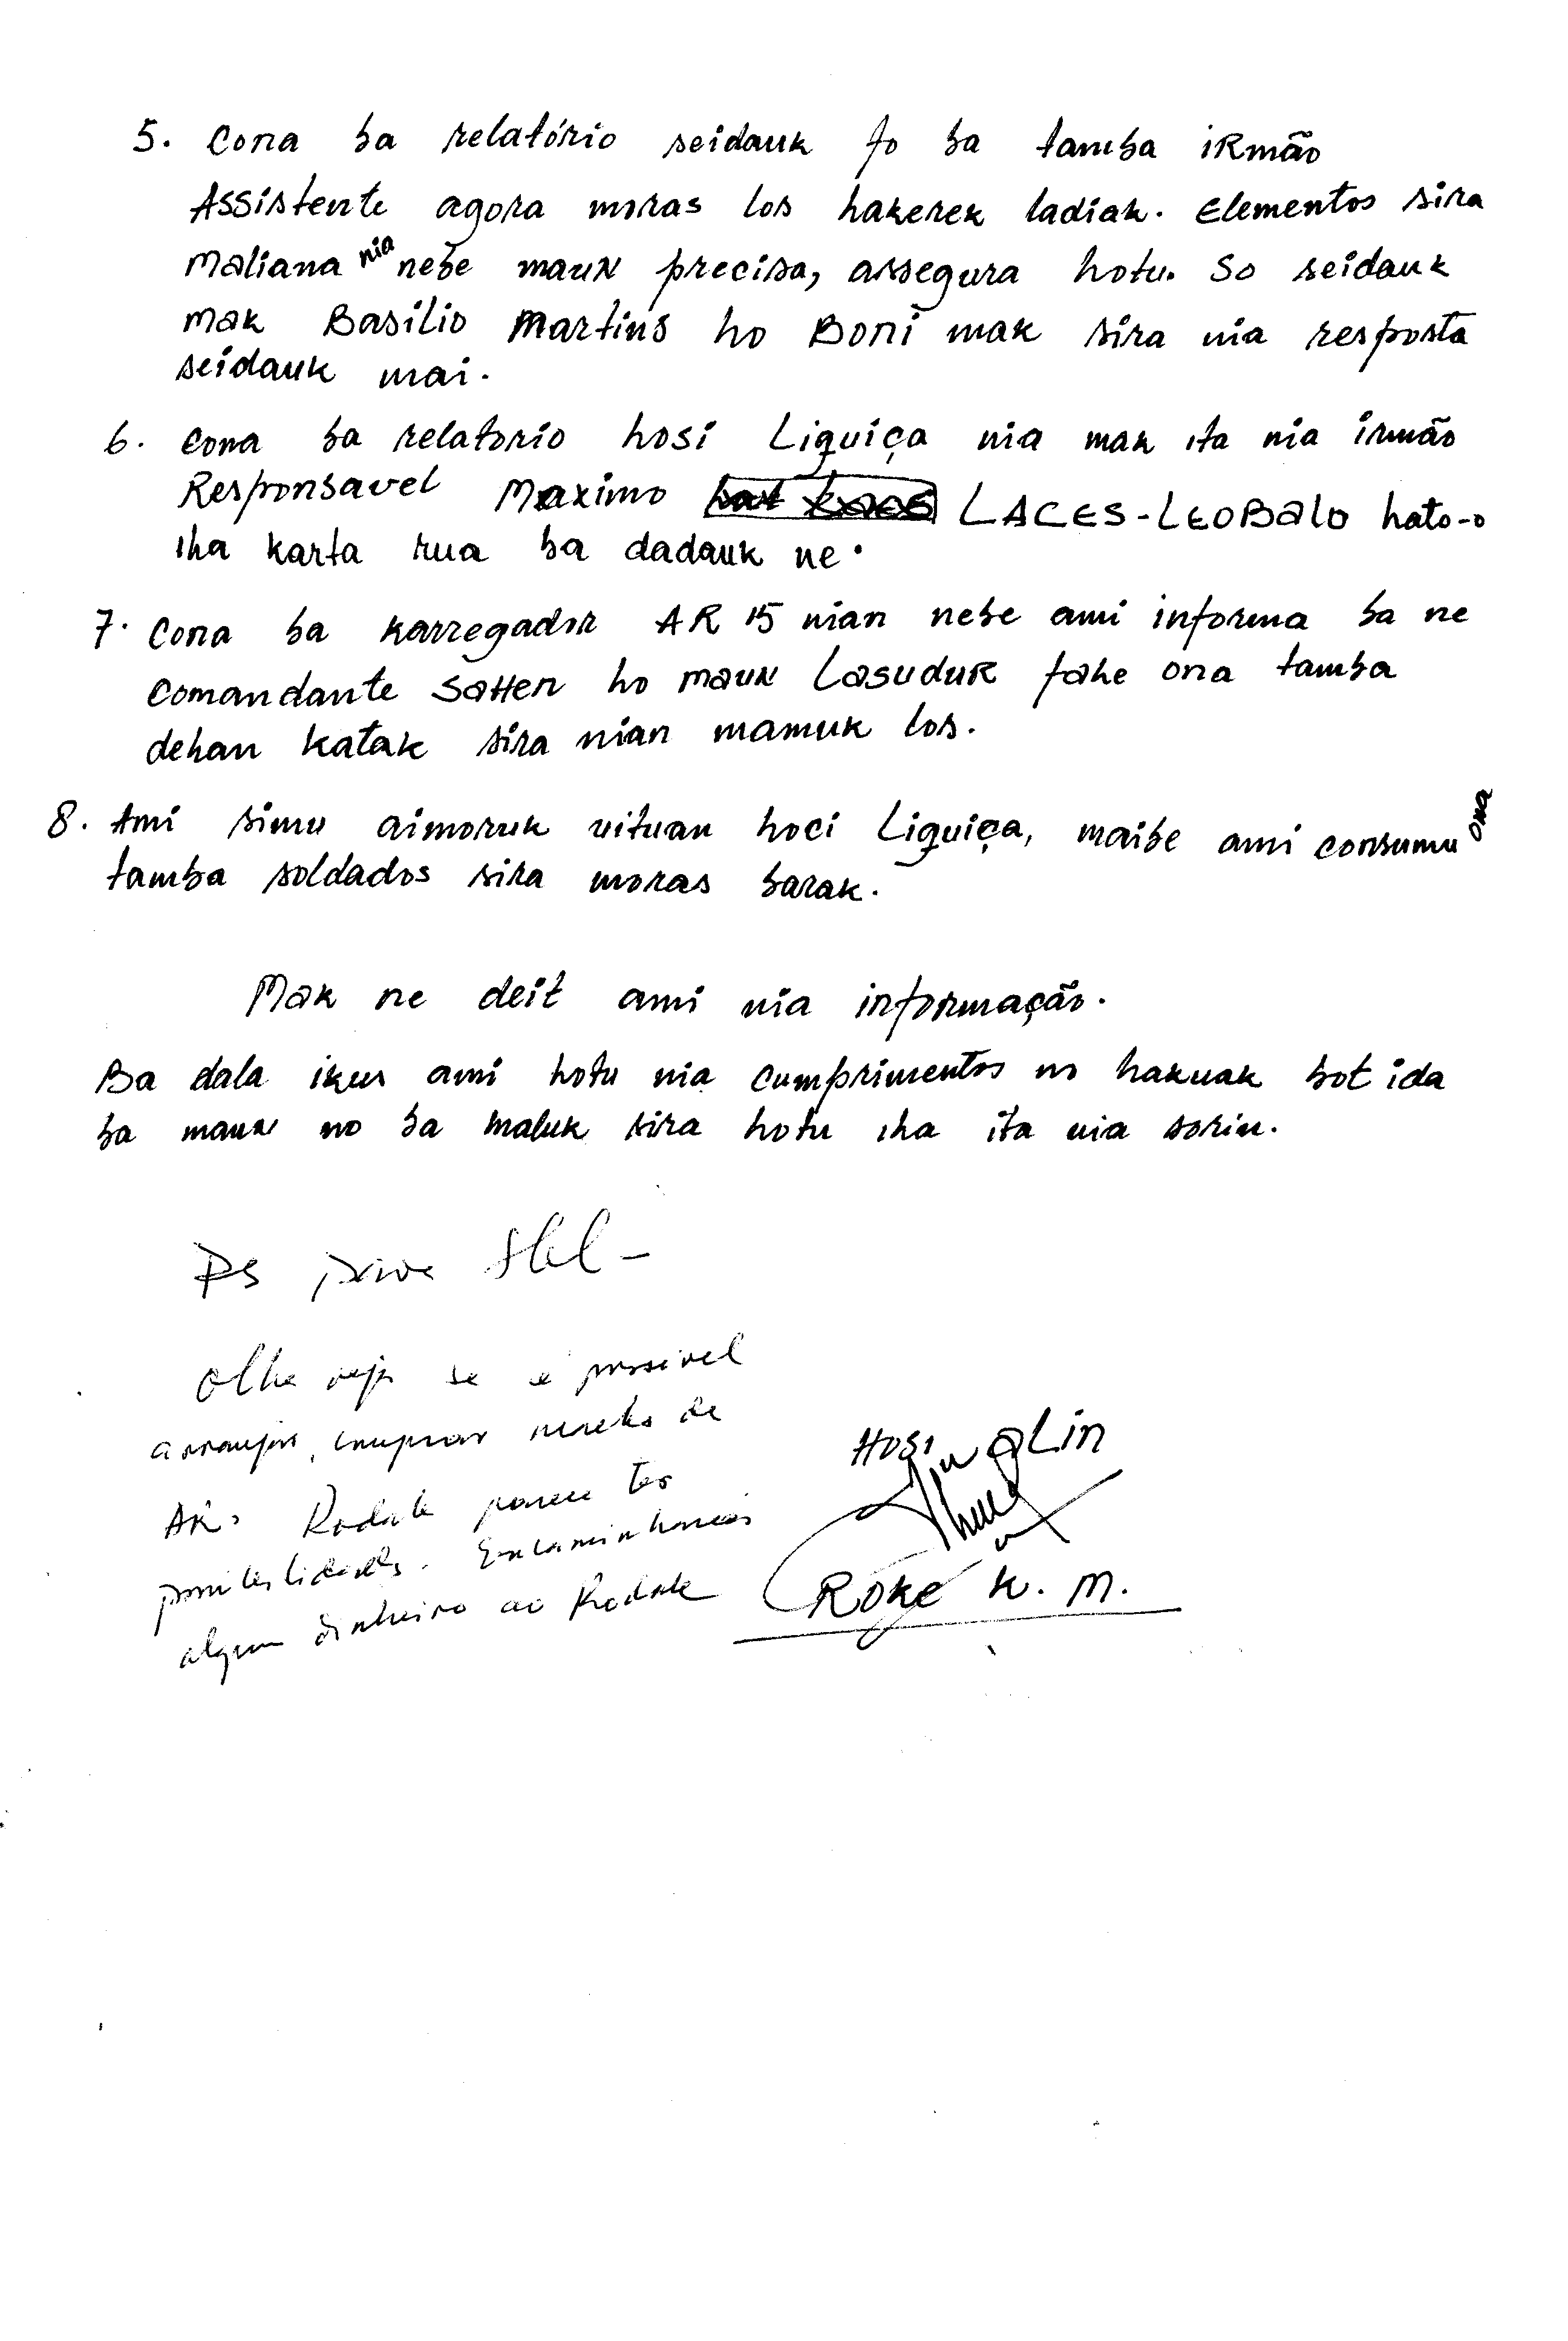 5. Cona ba relatório seidauk fo ba tamba iRmão
Assistente agora moras los hakerek ladiak. Elementos sira
Maliana nia nebe mauN precisa, assegura hotu. So seidauk
mak Basilio Martins ho Boni mak sira nia resposta
seidauk mai.
6. Cona ba relatorio hosi Liquiça nia mak ita nia irmão
Responsavel Maximo LACES-LEOBalo hato-o
iha karta rua ba dadauk ne.
7. Cona ba karregador AR 15 nian nebe ami informa ba ne
Comandante Satten ho mauN LasuduK fahe ona tamba
dehan katak sira nian mamuk los.
8. Ami simu aimoruk uituan hoci Liquiça, maibe ami consumu ona
tamba soldados sira moras barak.
Mak ne deit ami nia informação.
Ba dala ikus ami hotu nia cumprimentos no hakuak bot ida
ba maun no ba maluk sira hotu iha ita nia sorin.
PS
Olha veja se é possivel
arranjar, comprar
AR. Rodak parece ter
possibilidades. Encaminharei
algum dinheiro ao Rodak
Hosi aLin
Roke K. M.